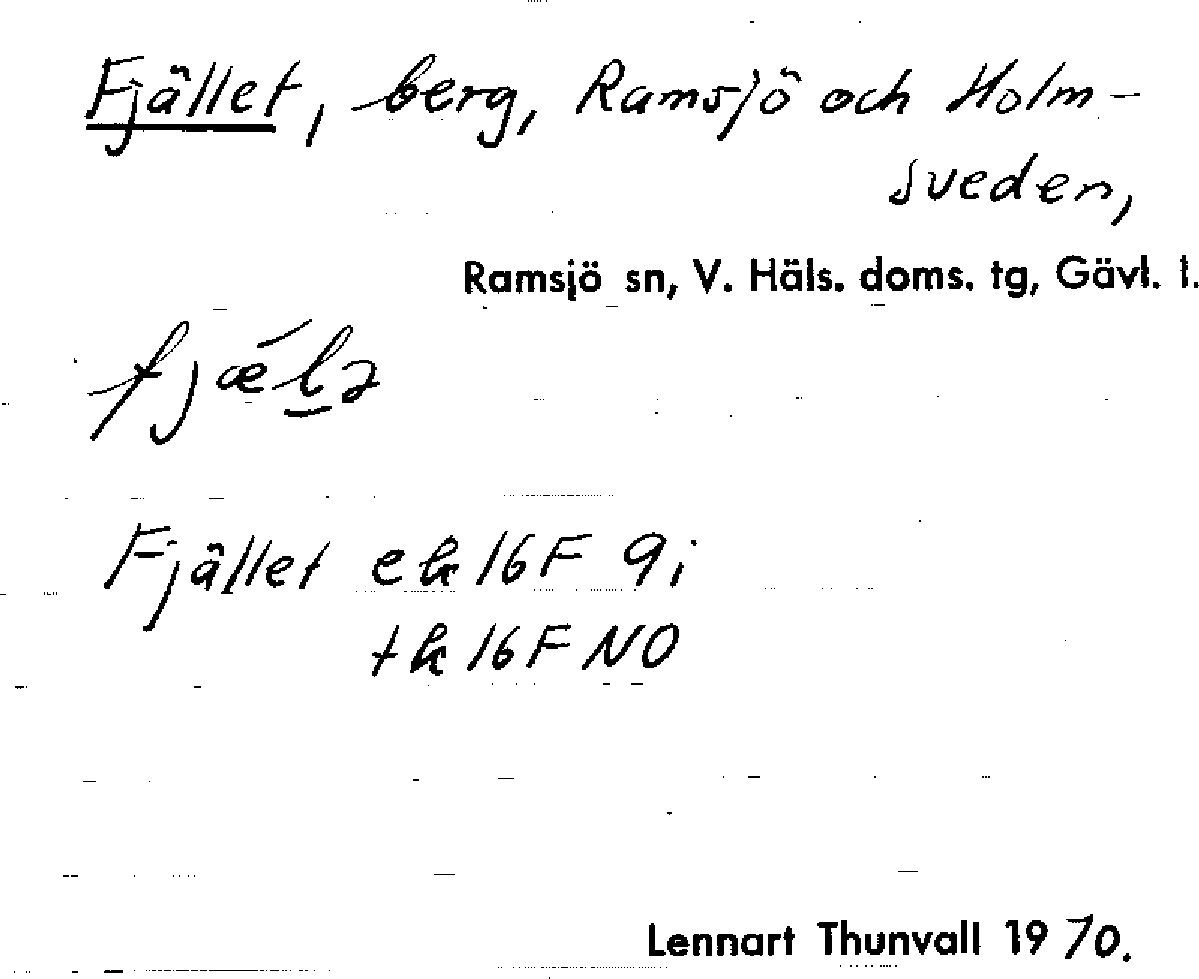 Fjället, berg, Ramsjö och Holm-
sveden,
Ramsjö sn, V. Häls. doms. tg, Gävl. l.
fjǽl̠ə
Fjället ek 16F 9i
tk 16F NO
Lennart Thunvall 1970.